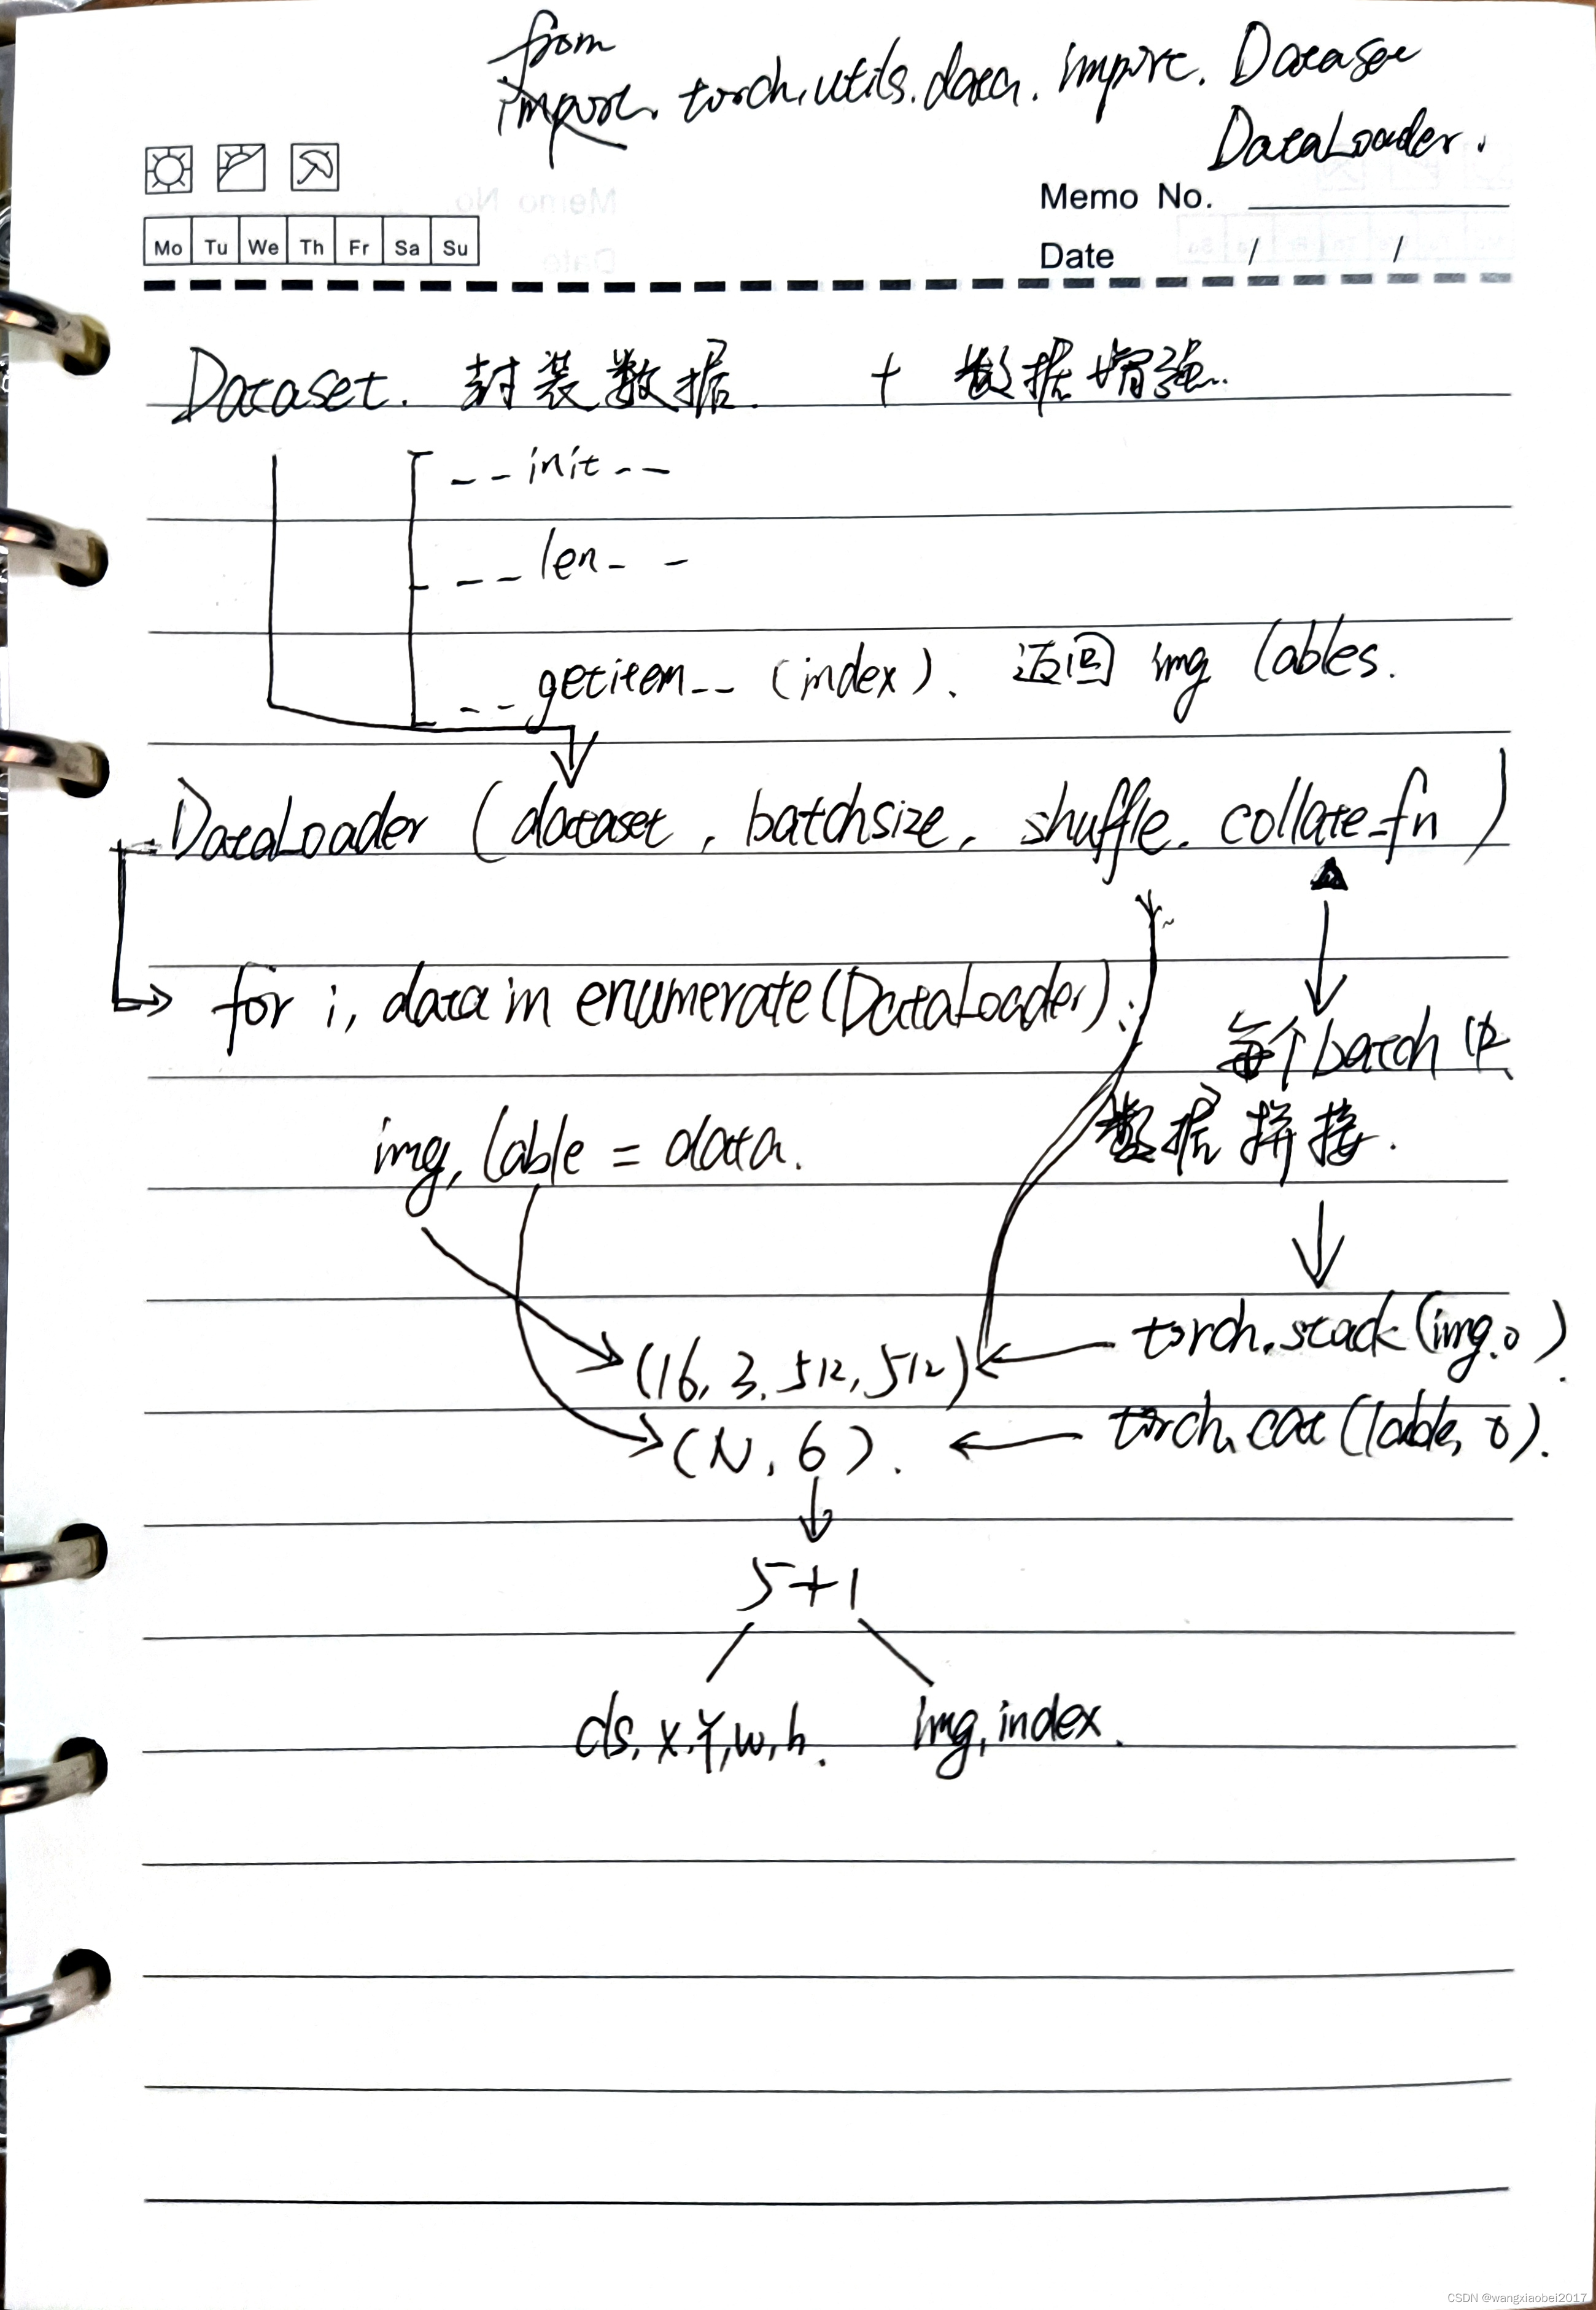 from
import. torch.utils.data. import. Dataset
DataLoader.
Memo No.
Mo Tu We Th Fr Sa Su
Date / /
Dataset. 封装数据. + 数据增强..
__init__
__len__
__getitem__ (index). 返回 img lables.
DataLoader (dataset, batchsize, shuffle. collate_fn)
for i, data in enumerate(DataLoader):
每个batch中
数据拼接.
img, lable = data.
(16, 3, 512, 512) ← torch.stack(img.0).
(N, 6). ← torch.cat(lable, 0).
5+1
cls, x, y, w, h. img, index.
CSDN @wangxiaobei2017